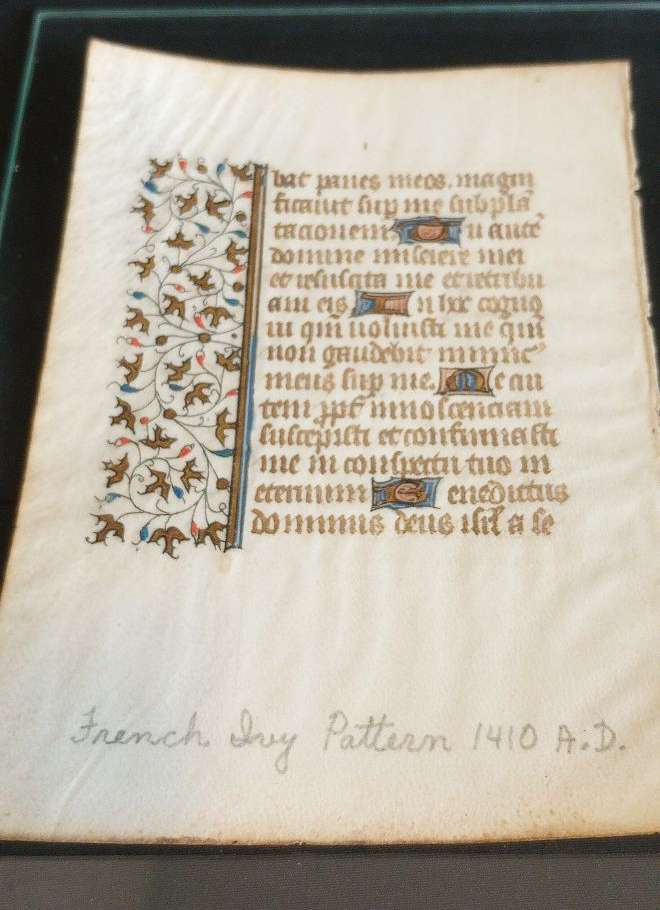 bat panes meos. magni
ficauit sup me subplā
tacionem. Tu autē
domine miserere mei
et resuscita me et retribu
am eis In hoc cogno
ui qm̄ uoluisti me qm̄
non gaudebit inimicꝰ
meus sup me. Me au
tem ꝓpt innocenciam
suscepisti et confirmasti
me in conspectu tuo in
eternum Benedictus
dominus deus isrl a se
French Ivy Pattern 1410 A.D.